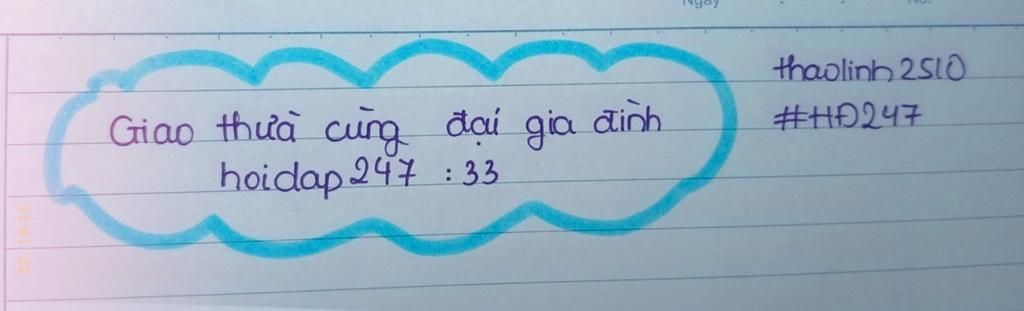 Ngày
No.
Giao thừa cùng đại gia đình
hoidap247 :33
thaolinh2510
#HĐ247
31 01 '22